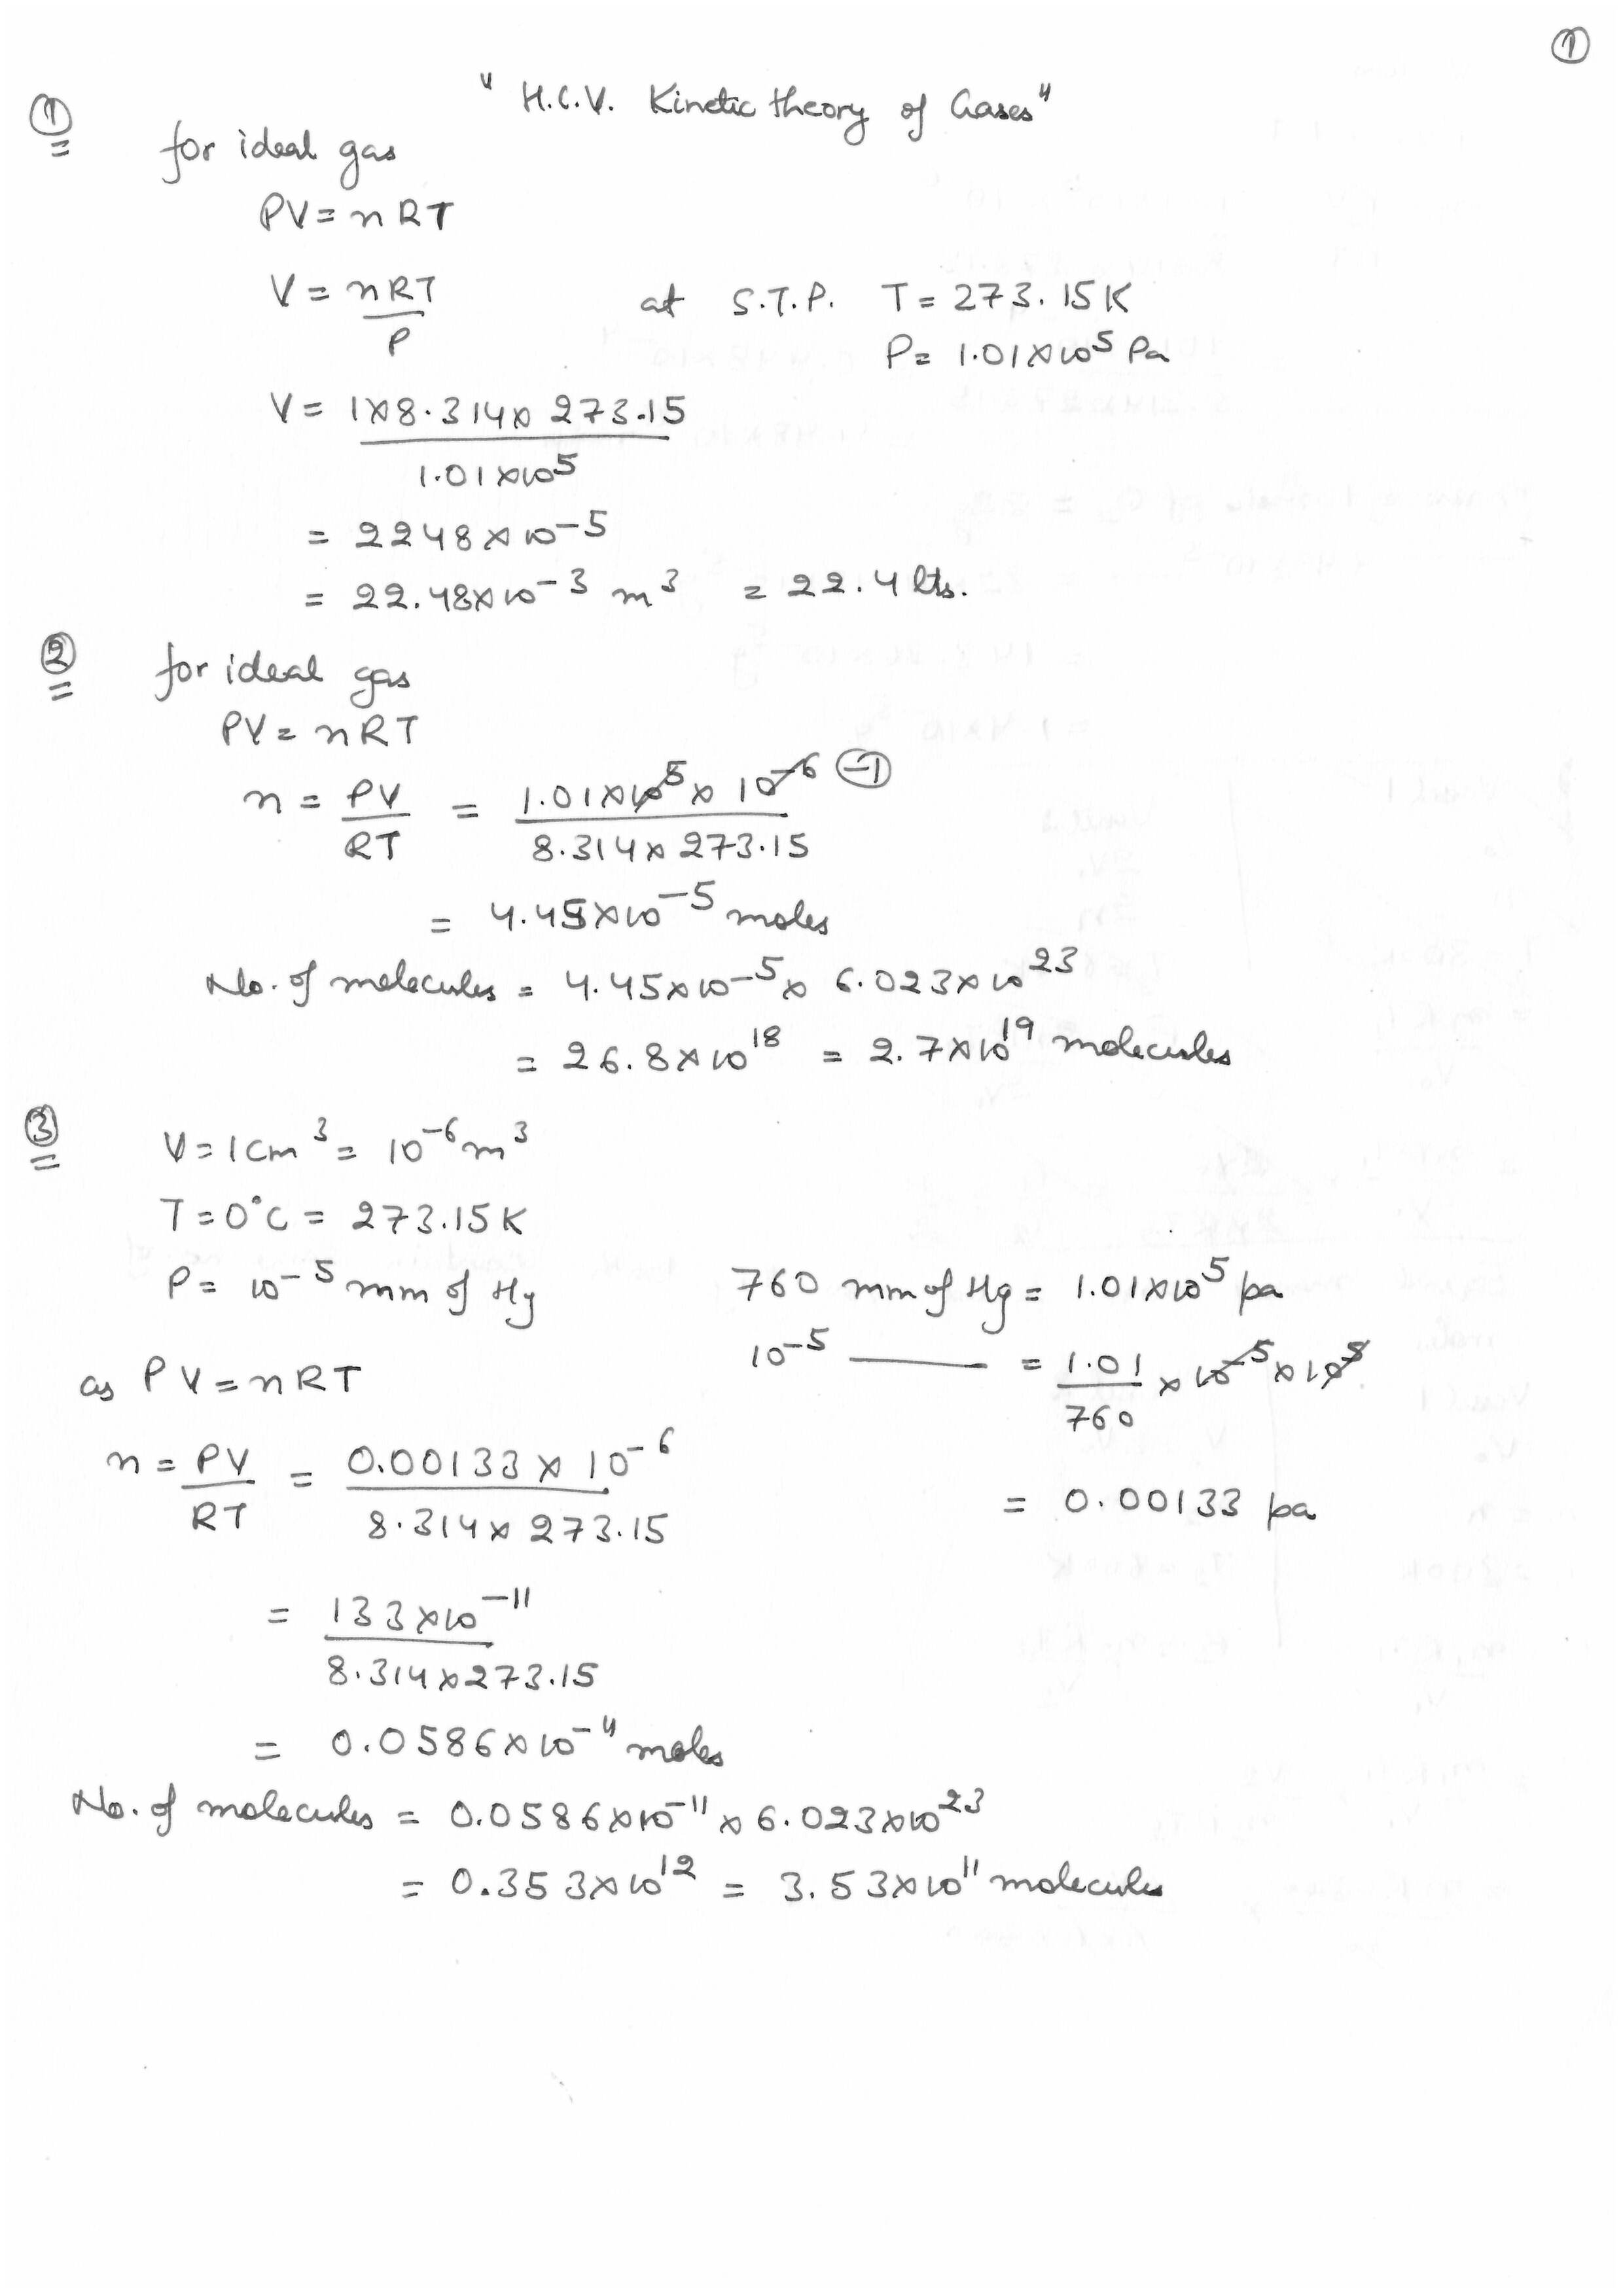 ①
"H.C.V. Kinetic theory of Gases"
① for ideal gas
PV = nRT
V = nRT/P at S.T.P. T = 273.15K
P = 1.01×10⁵ Pa
V = 1×8.314×273.15 / 1.01×10⁵
= 2248×10⁻⁵
= 22.48×10⁻³ m³ = 22.4 lts.
② for ideal gas
PV = nRT
n = PV/RT = 1.01×10⁵×10⁻⁶ ⊖1 / 8.314×273.15
= 4.45×10⁻⁵ moles
No. of molecules = 4.45×10⁻⁵× 6.023×10²³
= 26.8×10¹⁸ = 2.7×10¹⁹ molecules
③ V = 1cm³ = 10⁻⁶m³
T = 0°C = 273.15K
P = 10⁻⁵ mm of Hg 760 mm of Hg = 1.01×10⁵ pa
10⁻⁵ —— = 1.01/760 × 10⁻⁵×10⁵
as PV = nRT
n = PV/RT = 0.00133×10⁻⁶ / 8.314×273.15
= 0.00133 pa
= 133×10⁻¹¹ / 8.314×273.15
= 0.0586×10⁻¹¹ moles
No. of molecules = 0.0586×10⁻¹¹×6.023×10²³
= 0.353×10¹² = 3.53×10¹¹ molecules